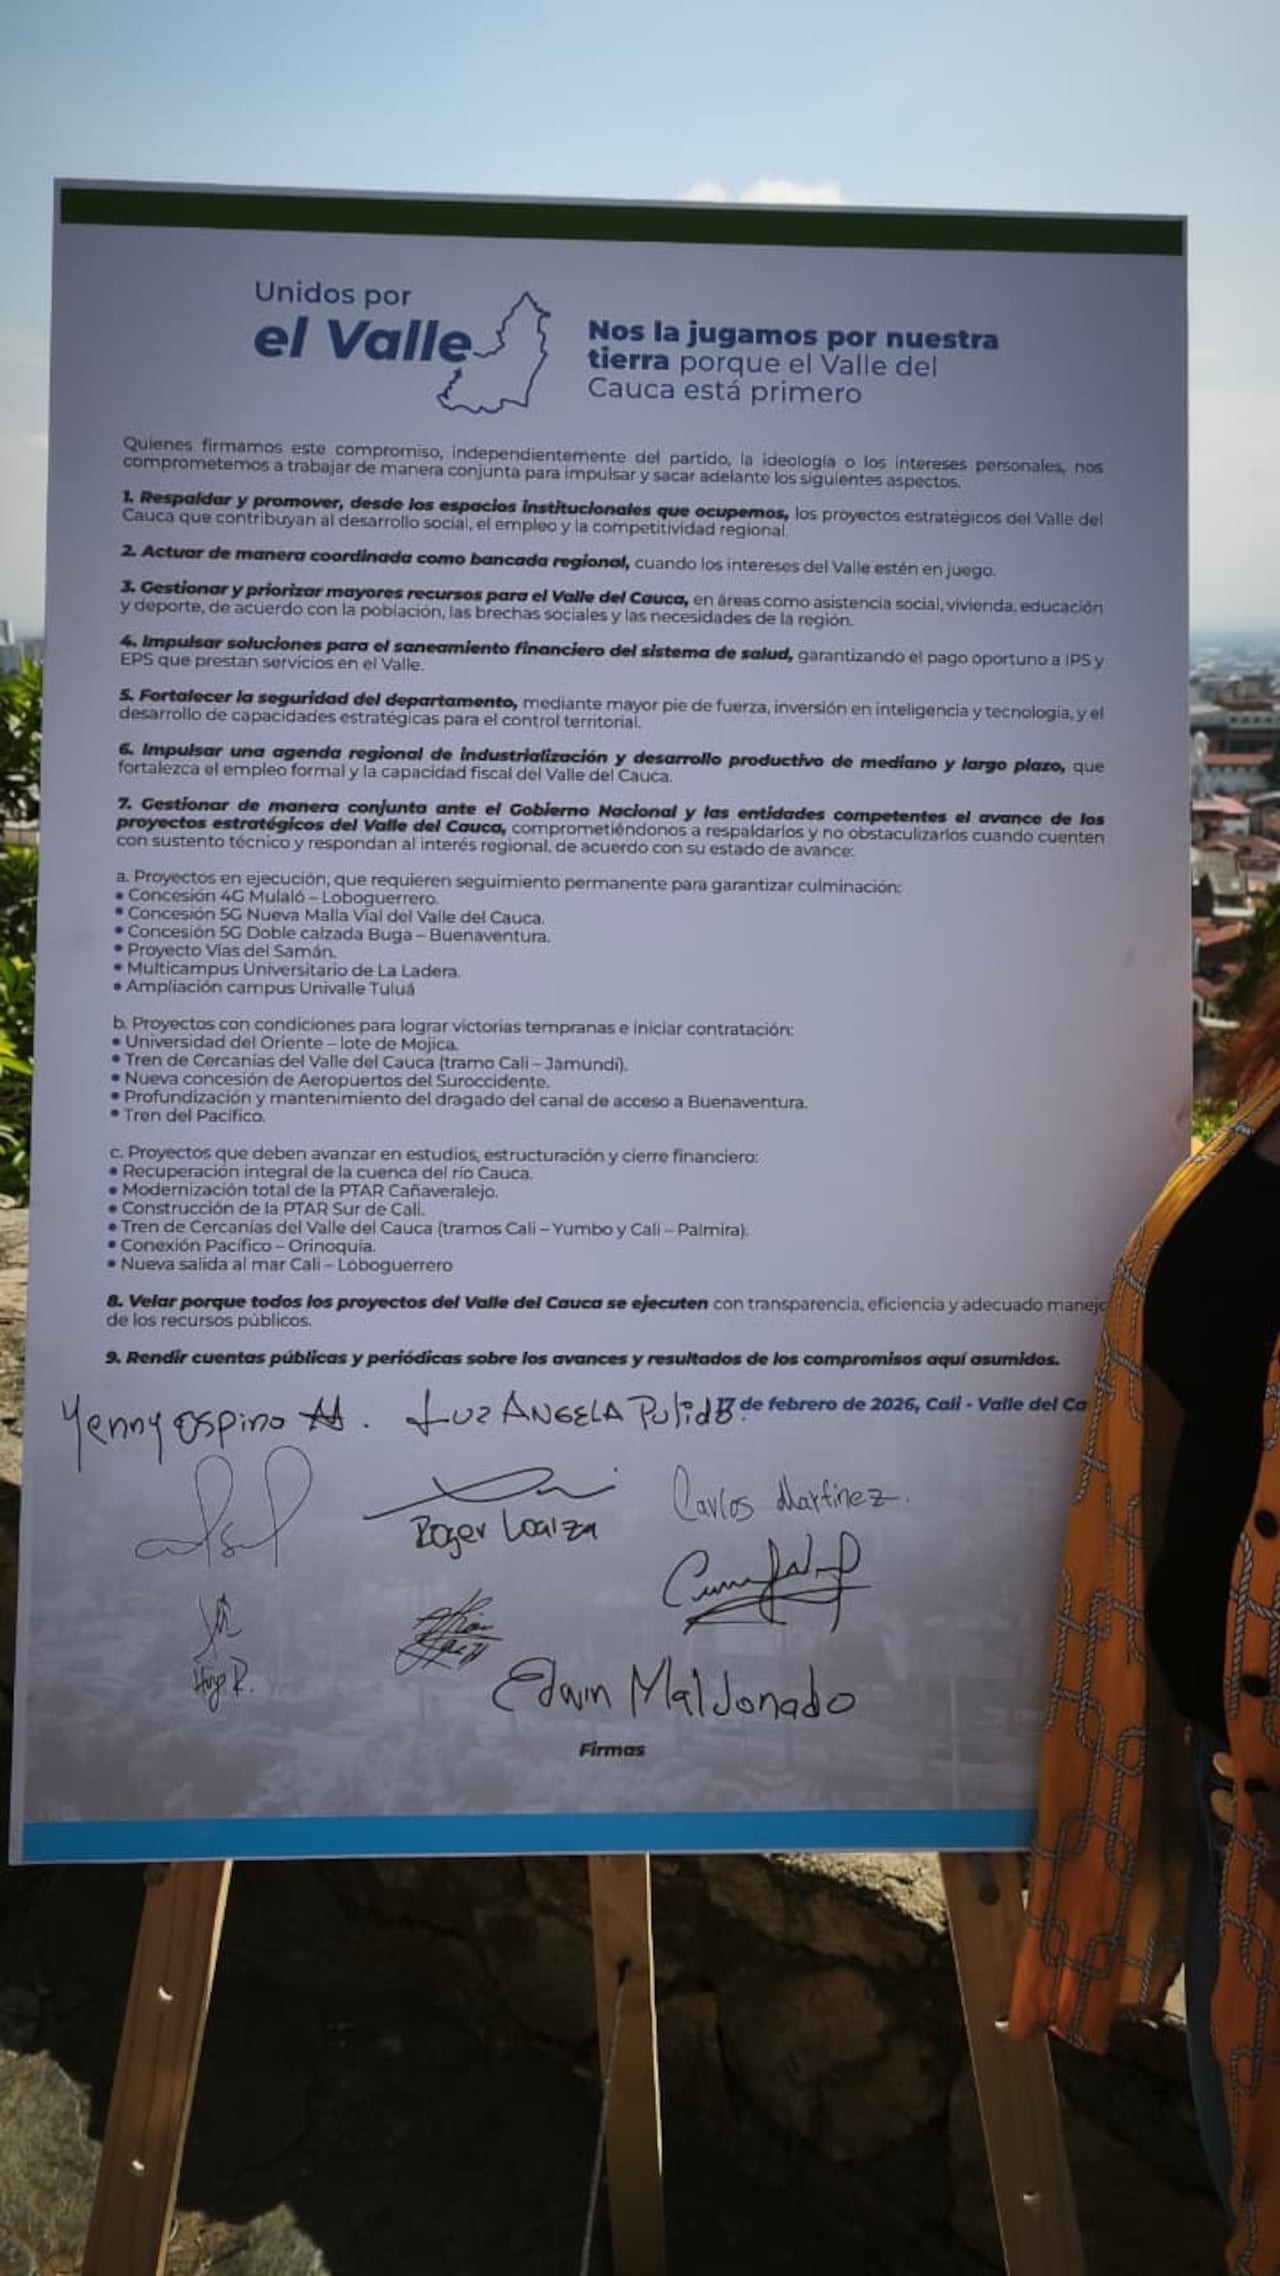 Unidos por
el Valle
Nos la jugamos por nuestra
tierra porque el Valle del
Cauca está primero
Quienes firmamos este compromiso, independientemente del partido, la ideología o los intereses personales, nos
comprometemos a trabajar de manera conjunta para impulsar y sacar adelante los siguientes aspectos.
1. Respaldar y promover, desde los espacios institucionales que ocupemos, los proyectos estratégicos del Valle del
Cauca que contribuyan al desarrollo social, el empleo y la competitividad regional.
2. Actuar de manera coordinada como bancada regional, cuando los intereses del Valle estén en juego.
3. Gestionar y priorizar mayores recursos para el Valle del Cauca, en áreas como asistencia social, vivienda, educación
y deporte, de acuerdo con la población, las brechas sociales y las necesidades de la región.
4. Impulsar soluciones para el saneamiento financiero del sistema de salud, garantizando el pago oportuno a IPS y
EPS que prestan servicios en el Valle.
5. Fortalecer la seguridad del departamento, mediante mayor pie de fuerza, inversión en inteligencia y tecnología, y el
desarrollo de capacidades estratégicas para el control territorial.
6. Impulsar una agenda regional de industrialización y desarrollo productivo de mediano y largo plazo, que
fortalezca el empleo formal y la capacidad fiscal del Valle del Cauca.
7. Gestionar de manera conjunta ante el Gobierno Nacional y las entidades competentes el avance de los
proyectos estratégicos del Valle del Cauca, comprometiéndonos a respaldarlos y no obstaculizarlos cuando cuenten
con sustento técnico y respondan al interés regional, de acuerdo con su estado de avance:
a. Proyectos en ejecución, que requieren seguimiento permanente para garantizar culminación:
• Concesión 4G Mulaló – Loboguerrero.
• Concesión 5G Nueva Malla Vial del Valle del Cauca.
• Concesión 5G Doble calzada Buga – Buenaventura.
• Proyecto Vías del Samán.
• Multicampus Universitario de La Ladera.
• Ampliación campus Univalle Tuluá
b. Proyectos con condiciones para lograr victorias tempranas e iniciar contratación:
• Universidad del Oriente – lote de Mojica.
• Tren de Cercanías del Valle del Cauca (tramo Cali – Jamundí).
• Nueva concesión de Aeropuertos del Suroccidente.
• Profundización y mantenimiento del dragado del canal de acceso a Buenaventura.
• Tren del Pacífico.
c. Proyectos que deben avanzar en estudios, estructuración y cierre financiero:
• Recuperación integral de la cuenca del río Cauca.
• Modernización total de la PTAR Cañaveralejo.
• Construcción de la PTAR Sur de Cali.
• Tren de Cercanías del Valle del Cauca (tramos Cali – Yumbo y Cali – Palmira).
• Conexión Pacífico – Orinoquía.
• Nueva salida al mar Cali – Loboguerrero
8. Velar porque todos los proyectos del Valle del Cauca se ejecuten con transparencia, eficiencia y adecuado manejo
de los recursos públicos.
9. Rendir cuentas públicas y periódicas sobre los avances y resultados de los compromisos aquí asumidos.
17 de febrero de 2026, Cali - Valle del Ca
Yenny Ospino
Luz ANGELA Pulido.
Roger Loaiza
Carlos Martinez.
Edwin Maldonado
Firmas